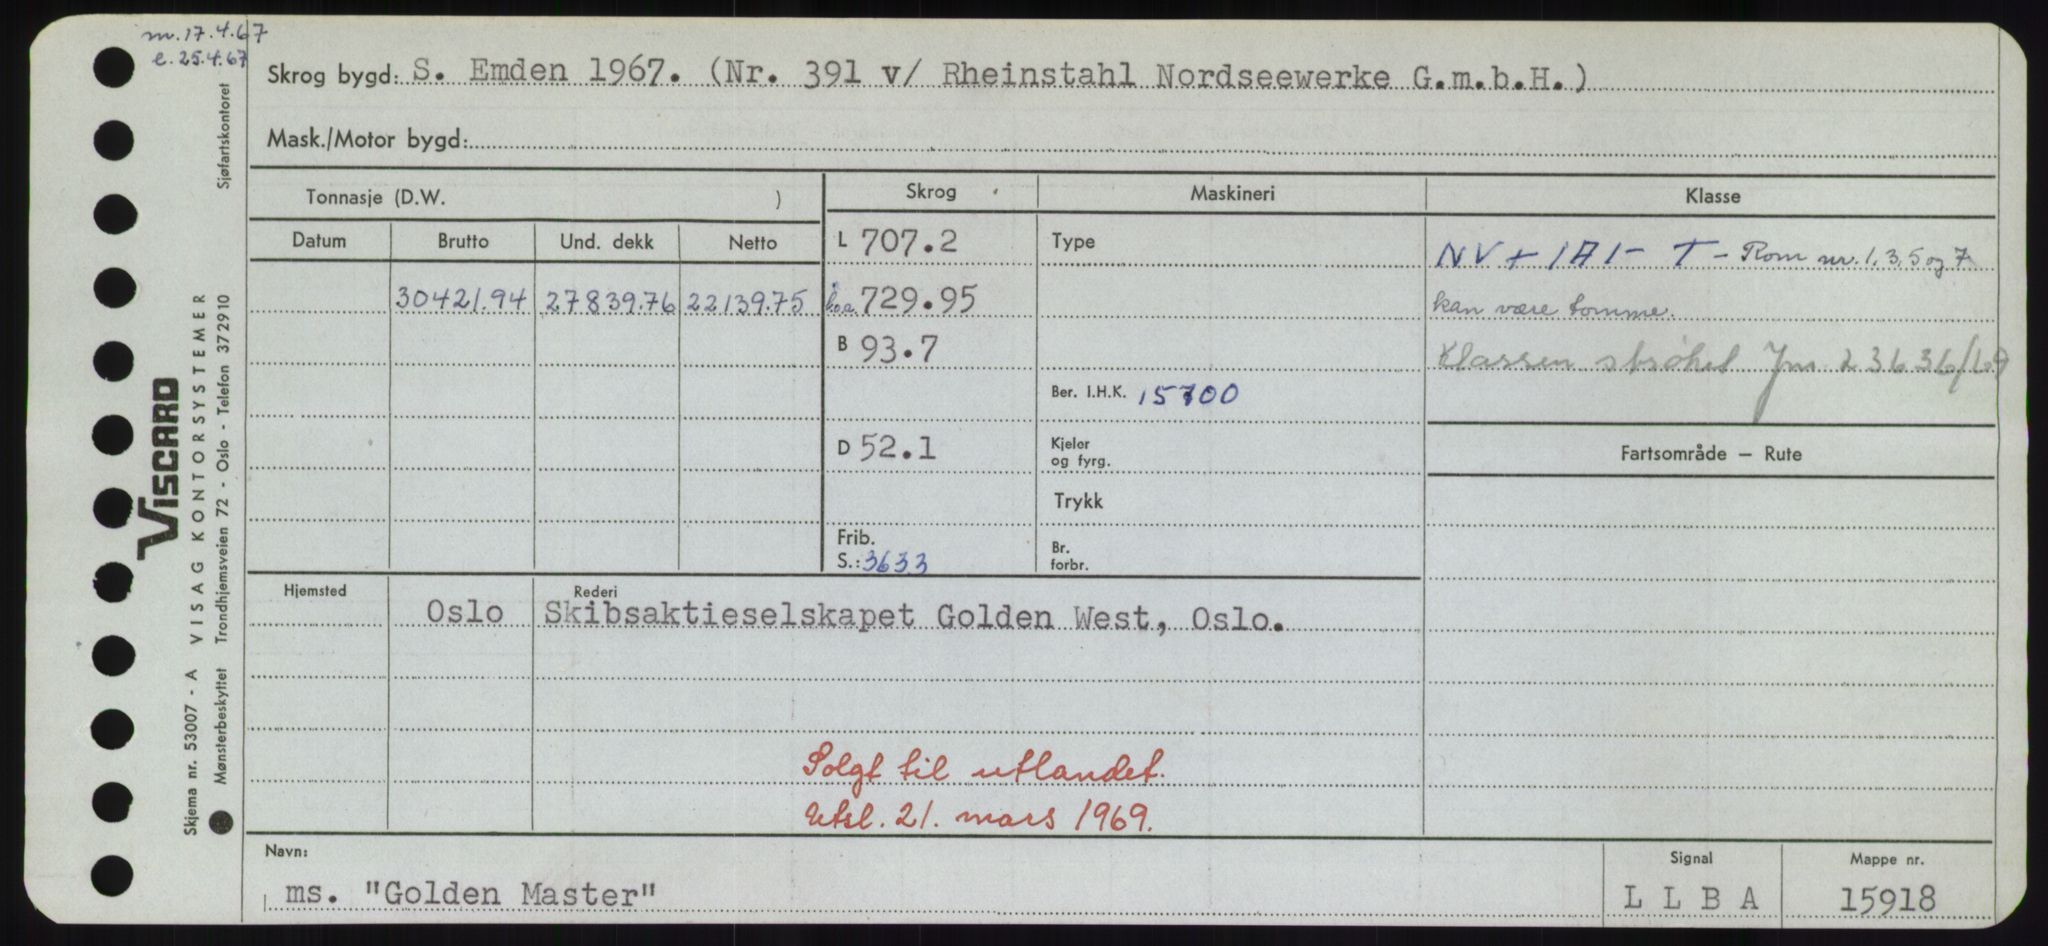 m. 17.4.67
e. 25.4.67
Skrog bygd: S. Emden 1967. (Nr. 391 v/ Rheinstahl Nordseewerke G.m.b.H.)
Mask./Motor bygd:
Tonnasje (D.W. )
Datum Brutto Und. dekk Netto
30421.94 27839.76 22139.75
Skrog
L 707.2
l.o.a. 729.95
B 93.7
D 52.1
Frib.
S.: 3633
Maskineri
Type
Ber. I.H.K. 15700
Kjeler
og fyrg.
Trykk
Br.
forbr.
Klasse
NV + 1A1 - T - Rom nr. 1, 3, 5 og 7
kan være tomme.
Klassen strøket Jnr. 23636/69
Fartsområde — Rute
Hjemsted Rederi
Oslo Skibsaktieselskapet Golden West, Oslo.
Solgt til utlandet.
Utsl. 21. mars 1969.
Navn: Signal Mappe nr.
ms. "Golden Master" L L B A 15918
Skjema nr. 53007 - A VISAG KONTORSYSTEMER
Mønsterbeskyttet Trondhjemsveien 72 - Oslo - Telefon 37 29 10 Sjøfartskontoret
VISCARD